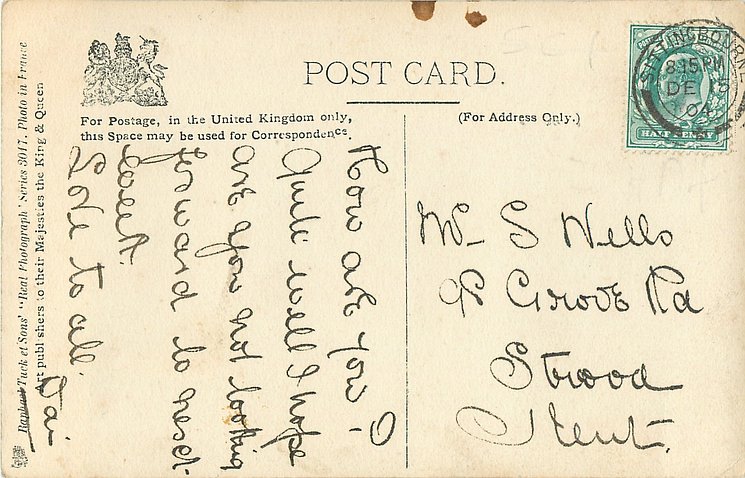 POST CARD.
For Postage, in the United Kingdom only,
this Space may be used for Correspondence.
(For Address Only.)
SITTINGBOURNE
8.15 PM
DE 5
04
HALFPENNY
How are you?
Quite well I hope
are you not looking
forward to next
week.
Love to all.
Dai
S Wells
Grove Rd
Strood
Kent.
Raphael Tuck et Sons' "Real Photograph" Series 3017. Photo in France
Art publishers to their Majesties the King & Queen